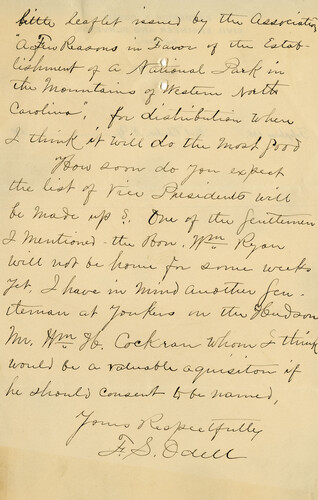 little Leaflet issued by the Association
"A Few Reasons in Favor of the Estab-
lishment of a National Park in
the Mountains of Western North
Carolina", for distribution when
I think it will do the most good
How soon do you expect
the list of Vice Presidents will
be made up? One of the gentlemen
I mentioned - the Hon. Wm Ryan
will not be home for some weeks
yet. I have in mind another gen-
tleman at Yonkers on the Hudson
Mr. Wm H. Cockran whom I think
would be a valuable aquisiton if
he should consent to be named,
Yours Respectfully
F. S. Odell